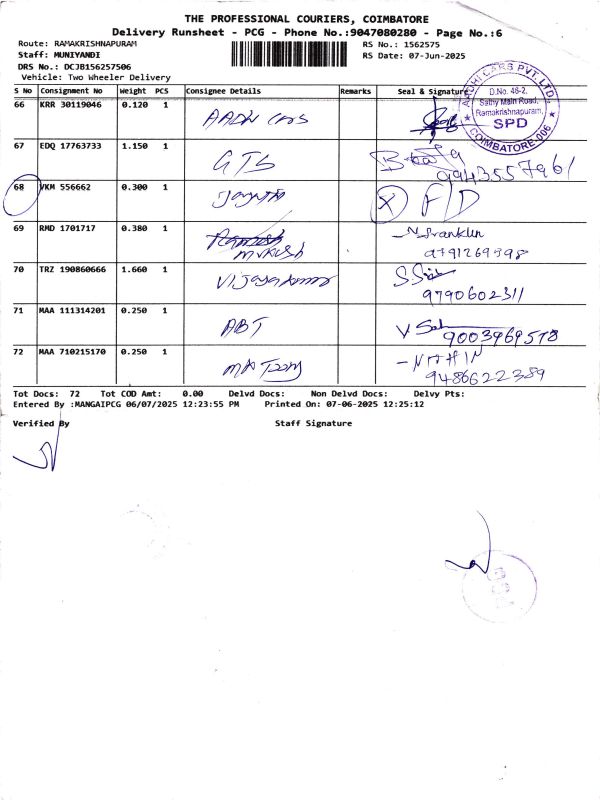 THE PROFESSIONAL COURIERS, COIMBATORE
Delivery Runsheet - PCG - Phone No.:9047080280 - Page No.:6
Route: RAMAKRISHNAPURAM
Staff: MUNIYANDI
DRS No.: DCJB156257506
Vehicle: Two Wheeler Delivery
RS No.: 1562575
RS Date: 07-Jun-2025
S No Consignment No Weight PCS Consignee Details Remarks Seal & Signature
66 KRR 30119046 0.120 1 AADHI CARS
AADHI CARS PVT. LTD.
D.No. 48-2,
Sathy Main Road,
Ramakrishnapuram,
SPD
COIMBATORE-006
67 EDQ 17763733 1.150 1 GTS 9943557961
68 VKM 556662 0.300 1 Jayanthi X F/D
69 RMD 1701717 0.380 1 N. Franklin
9791269998
70 TRZ 190860666 1.660 1 Vijayakumar
9790602311
71 MAA 111314201 0.250 1 ABT 9003969578
72 MAA 710215170 0.250 1 NITHIN
9486622389
Tot Docs: 72 Tot COD Amt: 0.00 Delvd Docs: Non Delvd Docs: Delvy Pts:
Entered By :MANGAIPCG 06/07/2025 12:23:55 PM Printed On: 07-06-2025 12:25:12
Verified By Staff Signature